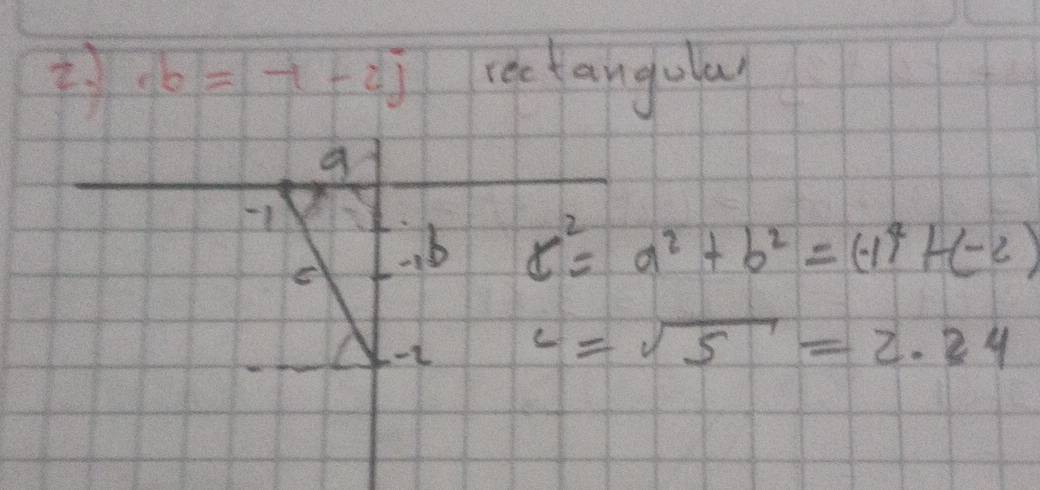 2.) .b = -1 - 2j rectangular
a
-1
-1 b c² = a² + b² = (-1)² + (-2)
c
-2 c = √5 = 2.24